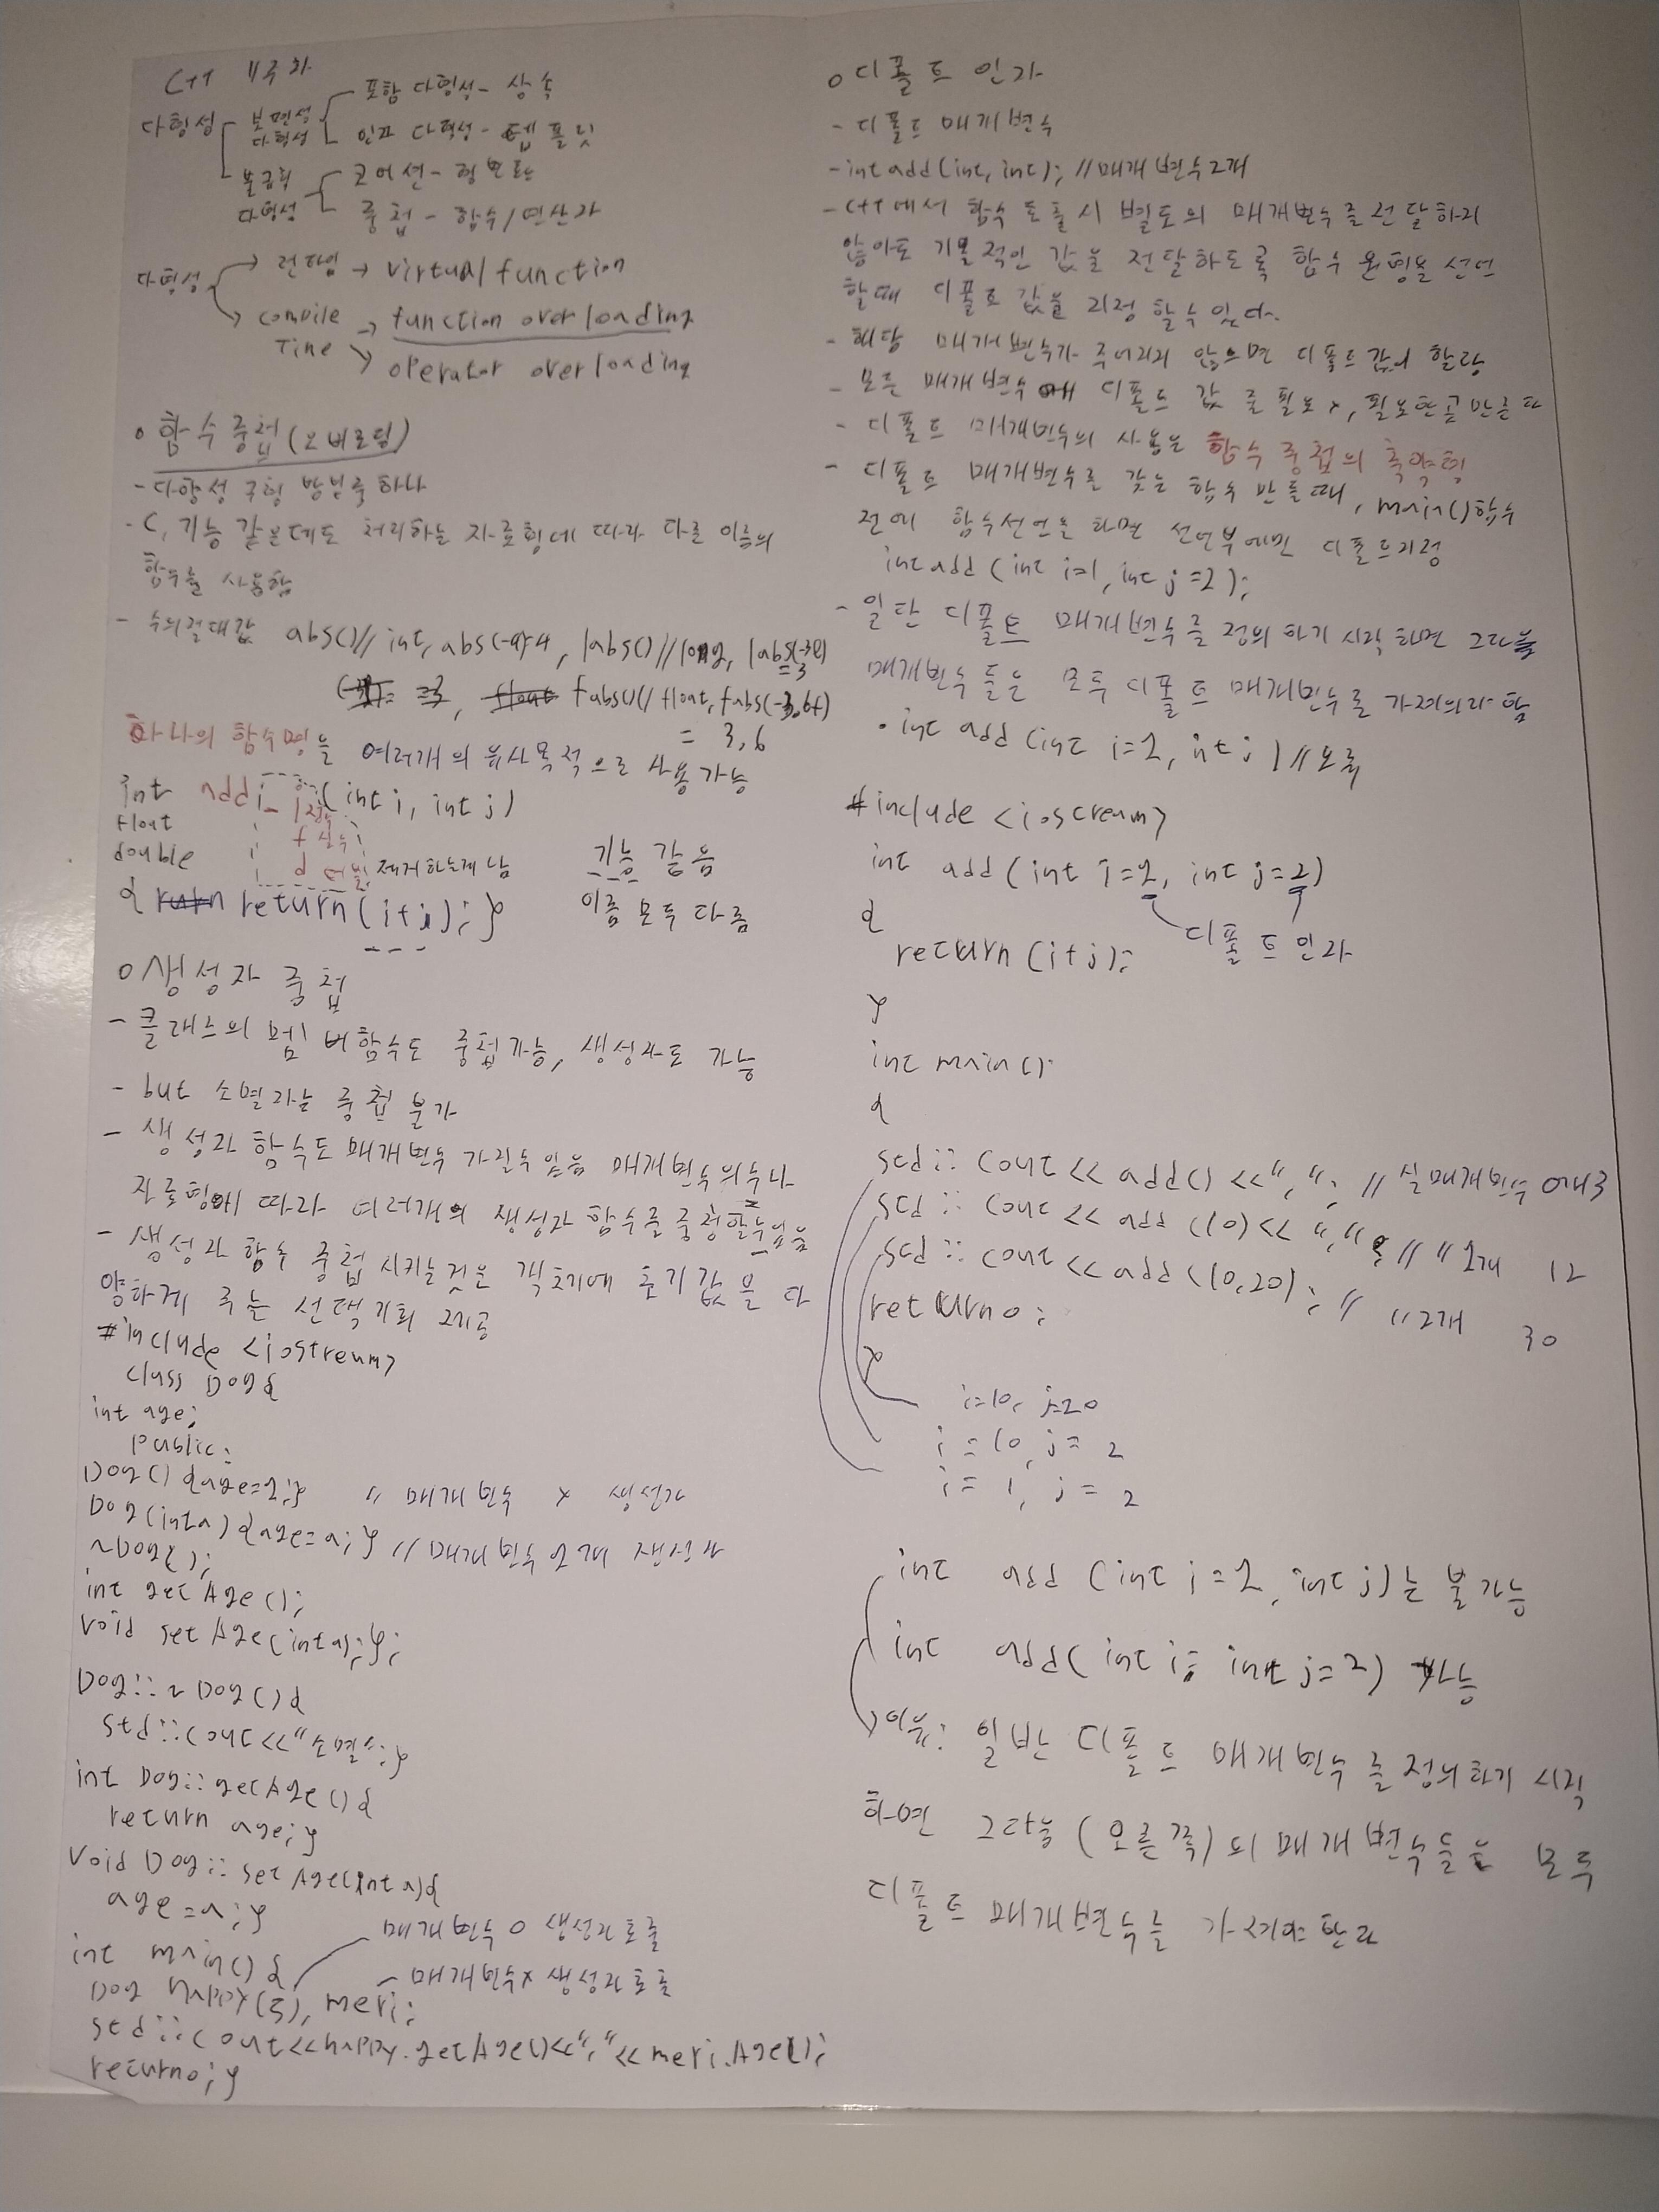 C++ 11주차
다형성
보편성 다형성
포함 다형성 - 상속
인자 다형성 - 템플릿
다형성
코어션 - 형변환
중첩 - 함수/연산자
다형성
런타임 → virtual function
compile Time → function overloading
operator overloading
o 함수 중첩(오버로딩)
- 다향성 구형 방법중 하나
- C, 기능 같은데도 처리하는 자료형에 따라 다른 이름의
함수를 사용함
- 수의절대값 abs()//int, abs(-4)=4, labs()//long, labs(-3l)
=3
fabs()//float, fabs(-3.6f)
= 3.6
하나의 함수명을 여러개의 유사목적으로 사용가능
int add_i정수(int i, int j)
float f 실수
double d 더블 제거하는게 남
{ return(i+j); }
기능 같음
이름 모두 다름
o 생성자 중첩
- 클래스의 멤버함수도 중첩가능, 생성자도 가능
- but 소멸자는 중첩 불가
- 생성자 함수도 매개변수 가질수있음 매개변수의수나
자료형에 따라 여러개의 생성자 함수를 중첩할수있음
- 생성자 함수 중첩 시키는것은 객체에 초기값을 다
양하게 주는 선택기회 제공
#include <iostream>
class Dog{
int age;
public:
Dog(){age=1;} // 매개변수 x 생성자
Dog(int a){age=a;} // 매개변수 1개 생성자
~Dog();
int getAge();
void setAge(int a);};
Dog::~Dog(){
std::cout<<"소멸";}
int Dog::getAge(){
return age;}
void Dog::setAge(int a){
age=a;}
int main(){
매개변수 o 생성자호출
- 매개변수x 생성자호출
Dog happy(5), meri;
std::cout<<happy.getAge()<<","<<meri.Age();
return0;}
o 디폴트 인자
- 디폴트 매개변수
- int add(int, int); //매개변수2개
- C++에서 함수 호출 시 별도의 매개변수를 전달하지
않아도 기본적인 값을 전달하도록 함수 원형을 선언
할때 디폴트 값을 지정 할수 있다.
- 해당 매개변수가 주어지지 않으면 디폴트 값이 할당
- 모든 매개변수에 디폴트 값 줄 필요x, 필요한곳만준다
- 디폴트 매개변수의 사용은 함수 중첩의 축약형
- 디폴트 매개변수를 갖는 함수 만들때, main()함수
전에 함수선언을 하면 선언부에만 디폴트지정
int add (int i=1, int j=2);
- 일단 디폴트 매개변수를 정의 하기 시작하면 그다음
매개변수 들은 모두 디폴트 매개변수로 가져야함
• int add (int i=1, int j) //오류
#include <iostream>
int add (int i=1, int j=2)
{
디폴트인자
return(i+j);
}
int main()
{
std::cout<<add()<<","; // 실매개변수 0개3
std::cout<<add(10)<<","; // " 1개 12
std::cout<<add(10,20); // "2개 30
return0;
}
i=10, j=20
i=10, j=2
i=1, j=2
int add (int i=1, int j)는 불가능
int add(int i, int j=2) 가능
이유: 일반 디폴트 매개변수 를 정의하기 시작
하면 그다음(오른쪽)의 매개변수들은 모두
디폴트 매개변수를 가져야 한다